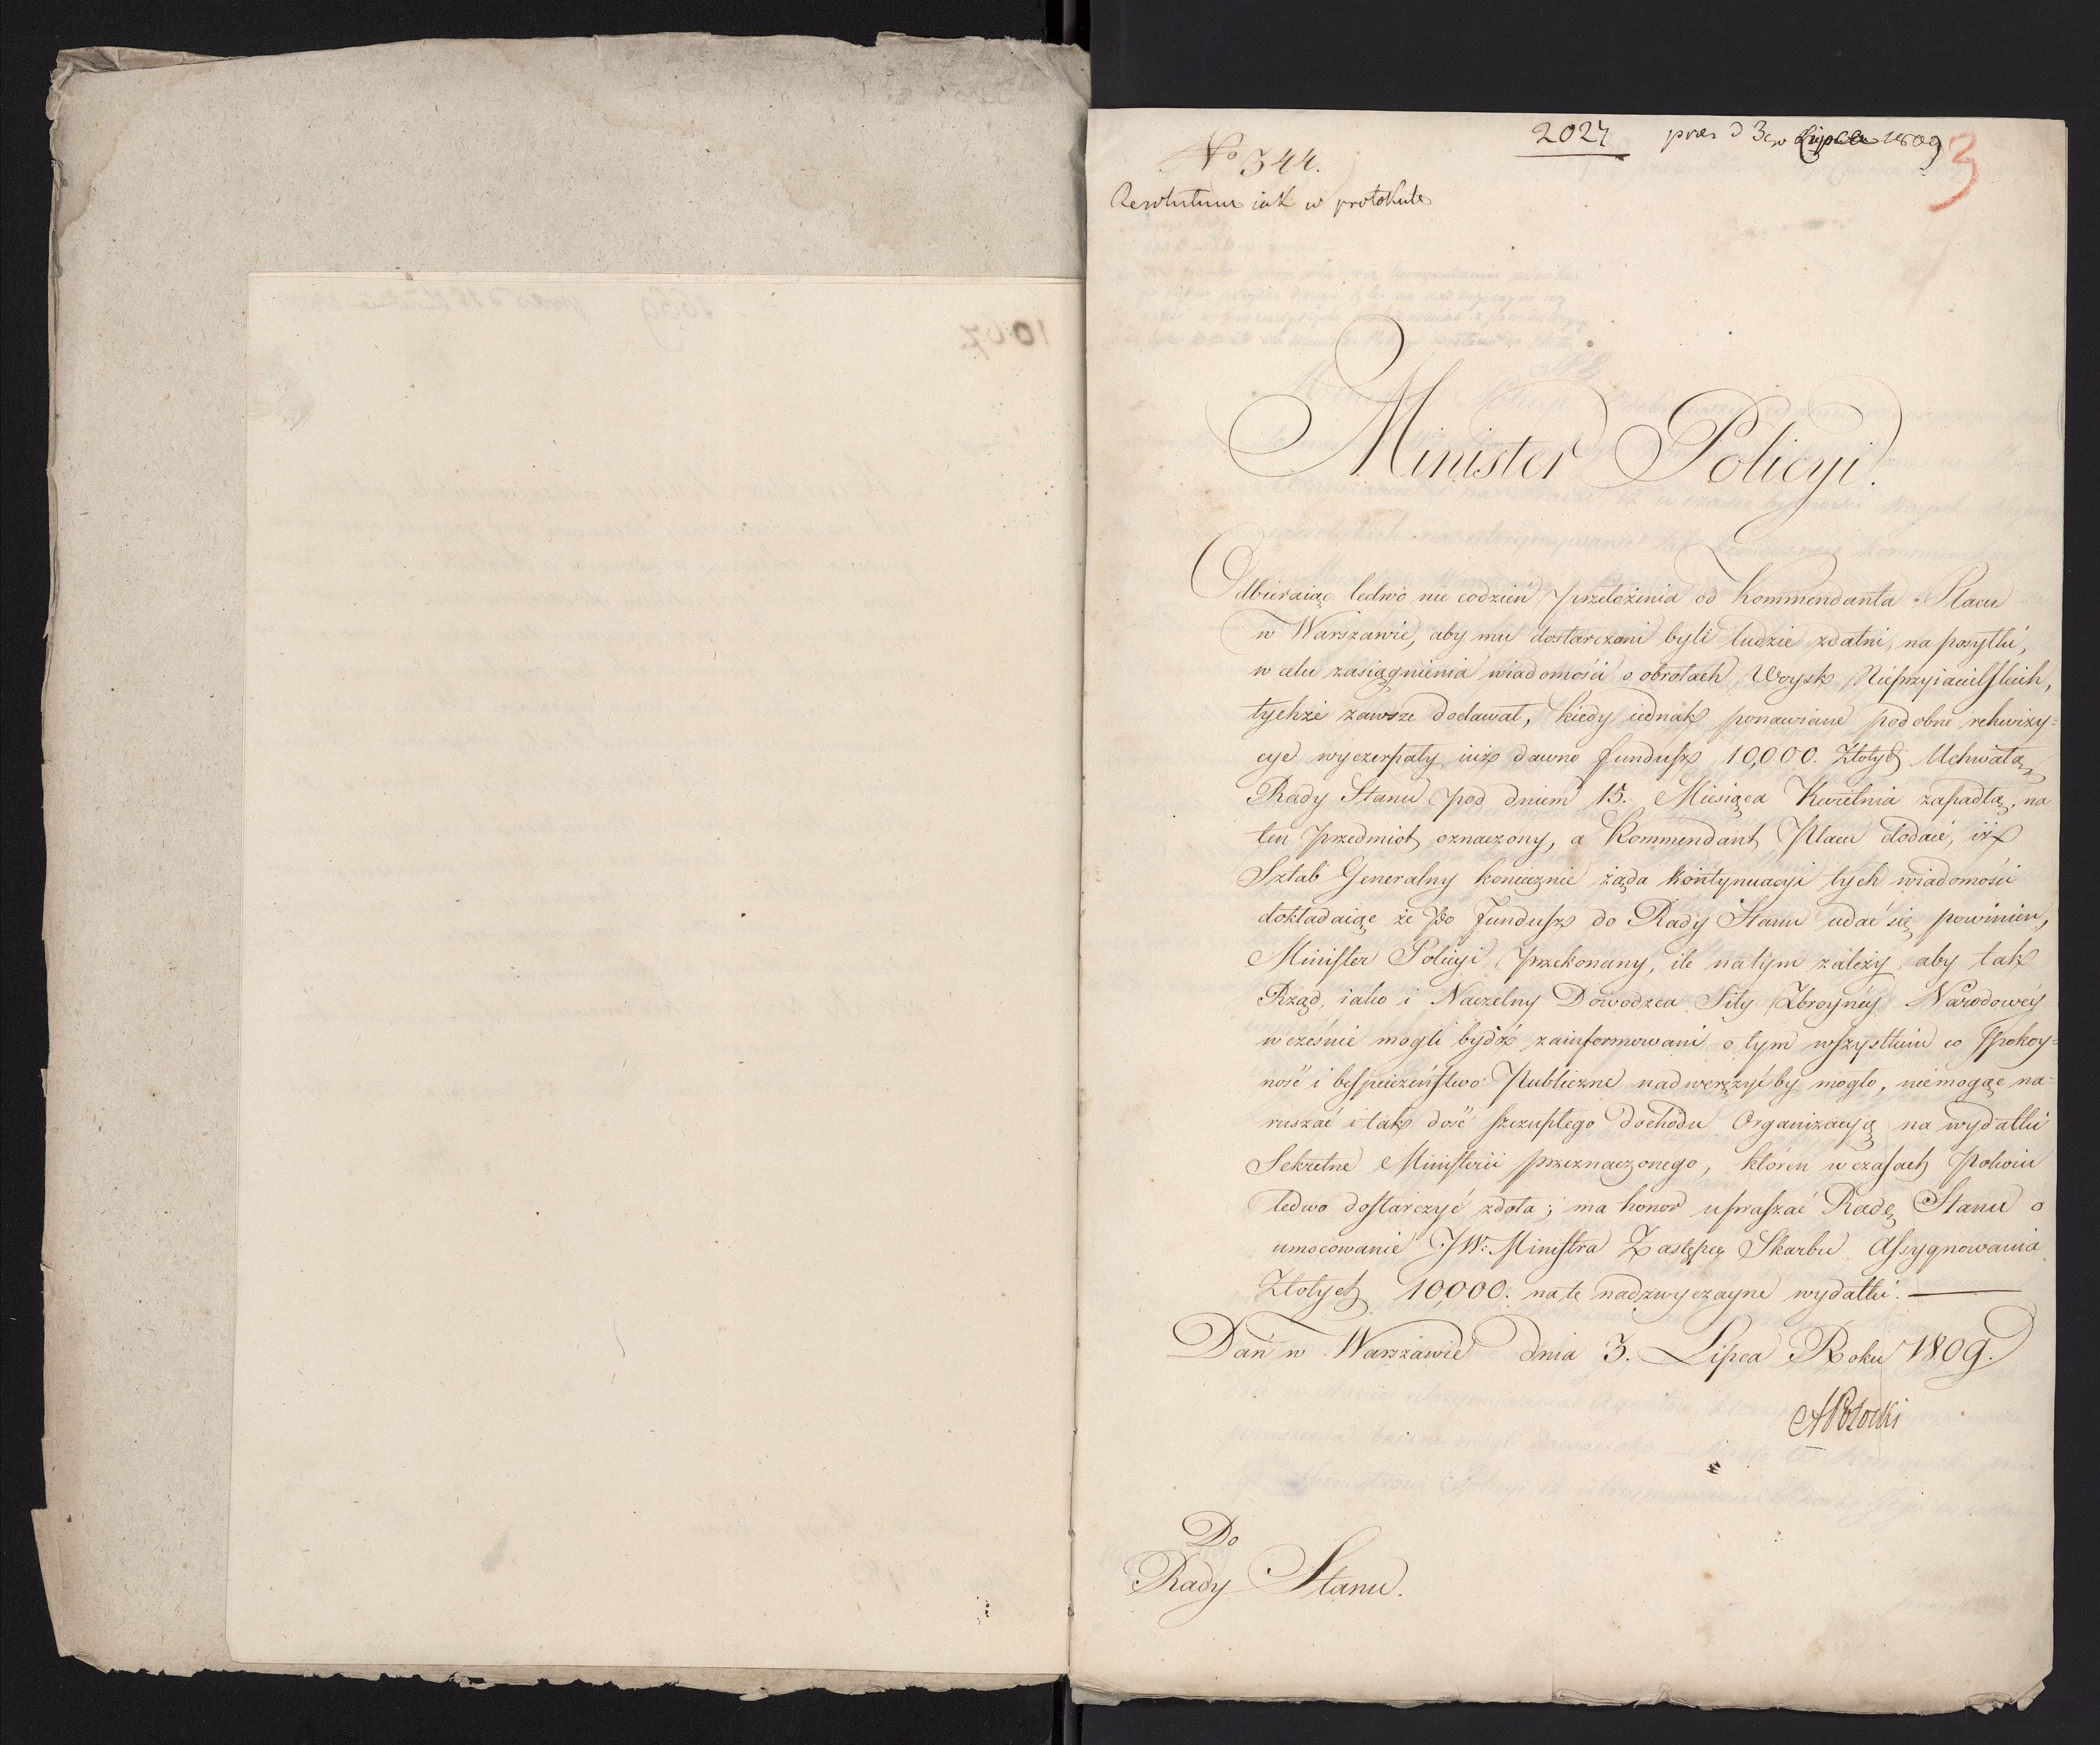 2027 pres d 3go Lipca 1809
3
No 344.
Resolutum iak w protokule
Minister Policyi.
Odbieraiąc ledwo nie codzień przełożenia od Kommendanta Placu
w Warszawie, aby mu dostarczani byli ludzie zdatni, na posyłki,
w celu zasiągnienia wiadomości o obrotach Woysk Nieprzyiacielskich,
tychże zawsze dodawał, kiedy iednak ponawiane podobne rekwizy=
cye wyczerpały iuż dawno fundusz 10,000. Złotych Uchwałą
Rady Stanu pod dniem 15. Miesiąca Kwietnia zapadłą, na
ten przedmiot oznaczony, a Kommendant Placu dodaie, iż
Sztab Generalny koniecznie żąda kontynuacyi tych wiadomości
dokładaiąc że po Fundusz do Rady Stanu udać się powinien,
Minister Policyi przekonany, ile na tym zależy, aby tak
Rząd, iako i Naczelny Dowodzca Siły Zbroynéy Narodowéy
wcześnie mogli bydź zainformowani o tym wszystkim co spokoy=
ność i bespieczeństwo Publiczne nadwerężyć by mogło, nie mogąc na=
ruszać i tak dość szczupłego dochodu Organizacyą na wydatki
Sekretne Ministerii przeznaczonego, któren w czasach Pokoiu
ledwo dostarczyć zdoła; ma honor upraszać Radę Stanu o
umocowanie JW: Ministra Zastępcę Skarbu Assygnowania
Złotych 10,000. na te nadzwyczayne wydatki.
Dań w Warszawie dnia 3. Lipca Roku 1809.
APotocki
Do
Rady Stanu.